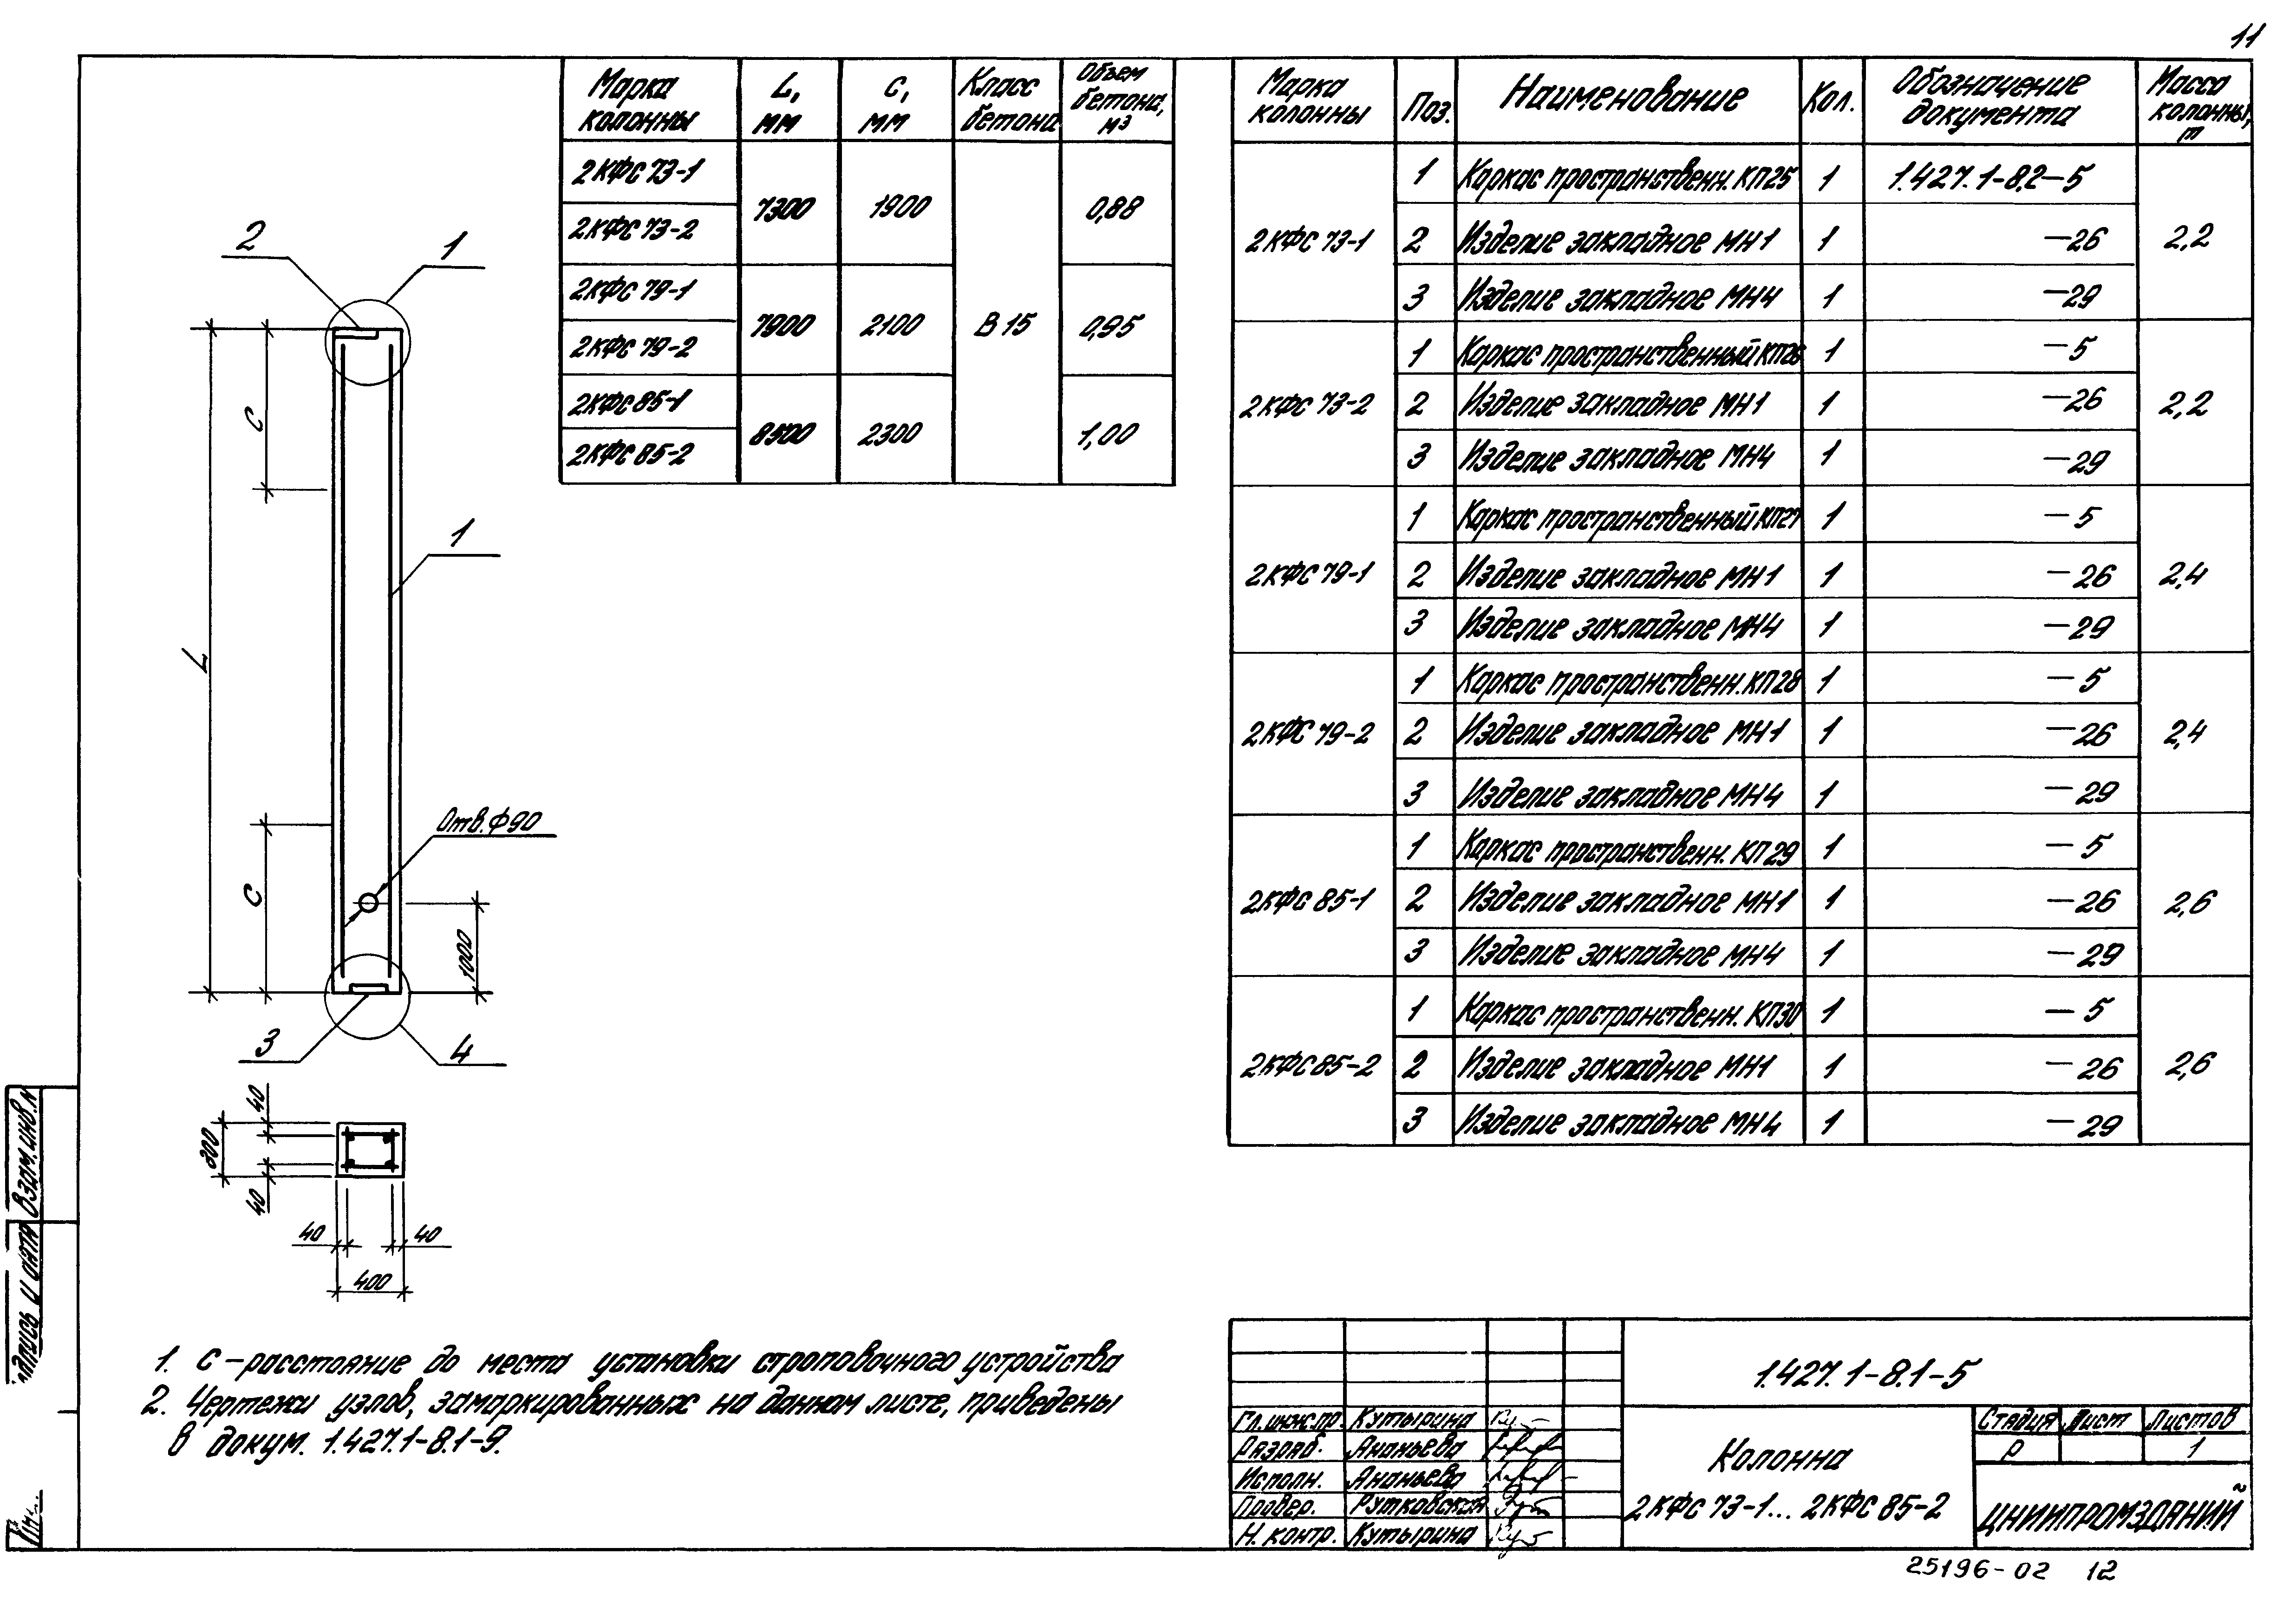 11
Марка колонны | L, мм | С, мм | Класс бетона | Объем бетона, м³
2КФС 73-1 | 7300 | 1900 | В 15 | 0,88
2КФС 73-2
2КФС 79-1 | 7900 | 2100 | 0,95
2КФС 79-2
2КФС 85-1 | 8500 | 2300 | 1,00
2КФС 85-2
Марка колонны | Поз. | Наименование | Кол. | Обозначение документа | Масса колонны, т
2КФС 73-1 | 1 | Каркас пространственн. КП25 | 1 | 1.427.1-8.2-5 | 2,2
2 | Изделие закладное МН1 | 1 | -26
3 | Изделие закладное МН4 | 1 | -29
2КФС 73-2 | 1 | Каркас пространственный КП26 | 1 | -5 | 2,2
2 | Изделие закладное МН1 | 1 | -26
3 | Изделие закладное МН4 | 1 | -29
2КФС 79-1 | 1 | Каркас пространственный КП27 | 1 | -5 | 2,4
2 | Изделие закладное МН1 | 1 | -26
3 | Изделие закладное МН4 | 1 | -29
2КФС 79-2 | 1 | Каркас пространственн. КП28 | 1 | -5 | 2,4
2 | Изделие закладное МН1 | 1 | -26
3 | Изделие закладное МН4 | 1 | -29
2КФС 85-1 | 1 | Каркас пространственн. КП29 | 1 | -5 | 2,6
2 | Изделие закладное МН1 | 1 | -26
3 | Изделие закладное МН4 | 1 | -29
2КФС 85-2 | 1 | Каркас пространственн. КП30 | 1 | -5 | 2,6
2 | Изделие закладное МН1 | 1 | -26
3 | Изделие закладное МН4 | 1 | -29
2
1
С
1
L
Отв. Ф90
С
1000
3
4
40
200
40
40
40
400
1. С - расстояние до места установки строповочного устройства
2. Чертежи узлов, замаркированных на данном листе, приведены
в докум. 1.427.1-8.1-9.
Взам. инв. N
и дата
1.427.1-8.1-5
Гл.инж.пр. Кутырина
Разраб. Ананьева
Исполн. Ананьева
Провер. Рутковская
Н. контр. Кутырина
Колонна
2КФС 73-1... 2КФС 85-2
Стадия | Лист | Листов
Р | | 1
ЦНИИПРОМЗДАНИЙ
25196-02 12